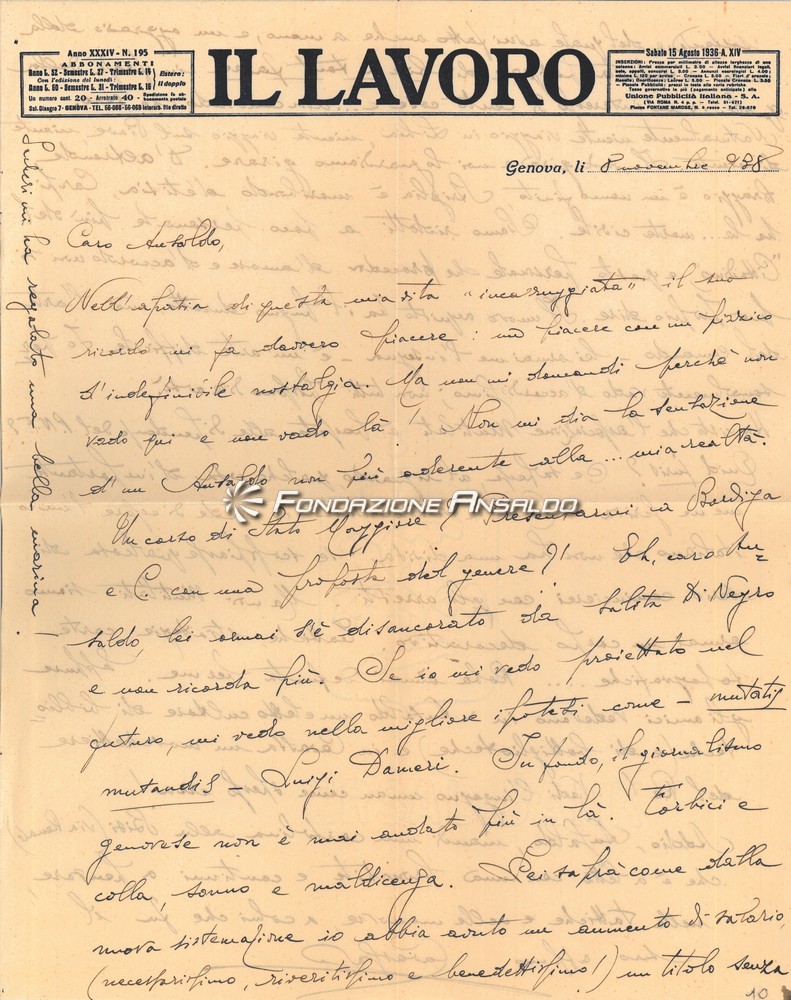 Anno XXXIV - N. 195
ABBONAMENTI
Anno L. 52 - Semestre L. 27 - Trimestre L. 14
Con l'edizione del lunedì:
Anno L. 60 - Semestre L. 31 - Trimestre L. 16
Estero:
il doppio
Un numero cent. 20 - Arretrato 40 - Spedizione in abbonamento postale
Sal. Dinegro 7 - GENOVA - Tel. 56-068
IL LAVORO
Sabato 15 Agosto 1936-A. XIV
Unione Pubblicità Italiana - S. A.
(VIA ROMA N. 4 p. p. - Telef. 51-471)
Piazza FONTANE MAROSE, N. 8 rosso - Tel. 26-676
Genova, li 8 novembre 938
Caro Ansaldo,
Nell'apatia di questa mia vita "incaruggiata" il suo
ricordo mi fa davvero piacere: un piacere con un pizzico
d'indefinibile nostalgia. Ma non mi domandi perchè non
vado qui e non vado là! Non mi dia la sensazione
d'un Ansaldo non più aderente alla... mia realtà.
Un corso di Stato Maggiore? Presentarmi a Bordiga
e C. con una proposta del genere?! Eh, caro An=
saldo, lei ormai s'è disancorato da Salita Di Negro
e non ricorda più. Se io mi vedo proiettato nel
futuro, mi vedo nella migliore ipotesi come - mutatis
mutandis - Luigi Dameri. In fondo, il giornalismo
genovese non è mai andato più in là. Forbici e
colla, sonno e maldicenza. Lei saprà come dalla
nuova sistemazione io abbia avuto un aumento di salario,
(necessarissimo, riveritissimo e benedettissimo!) un titolo senza
10
mi ha regalato una bella marina!
FONDAZIONE ANSALDO